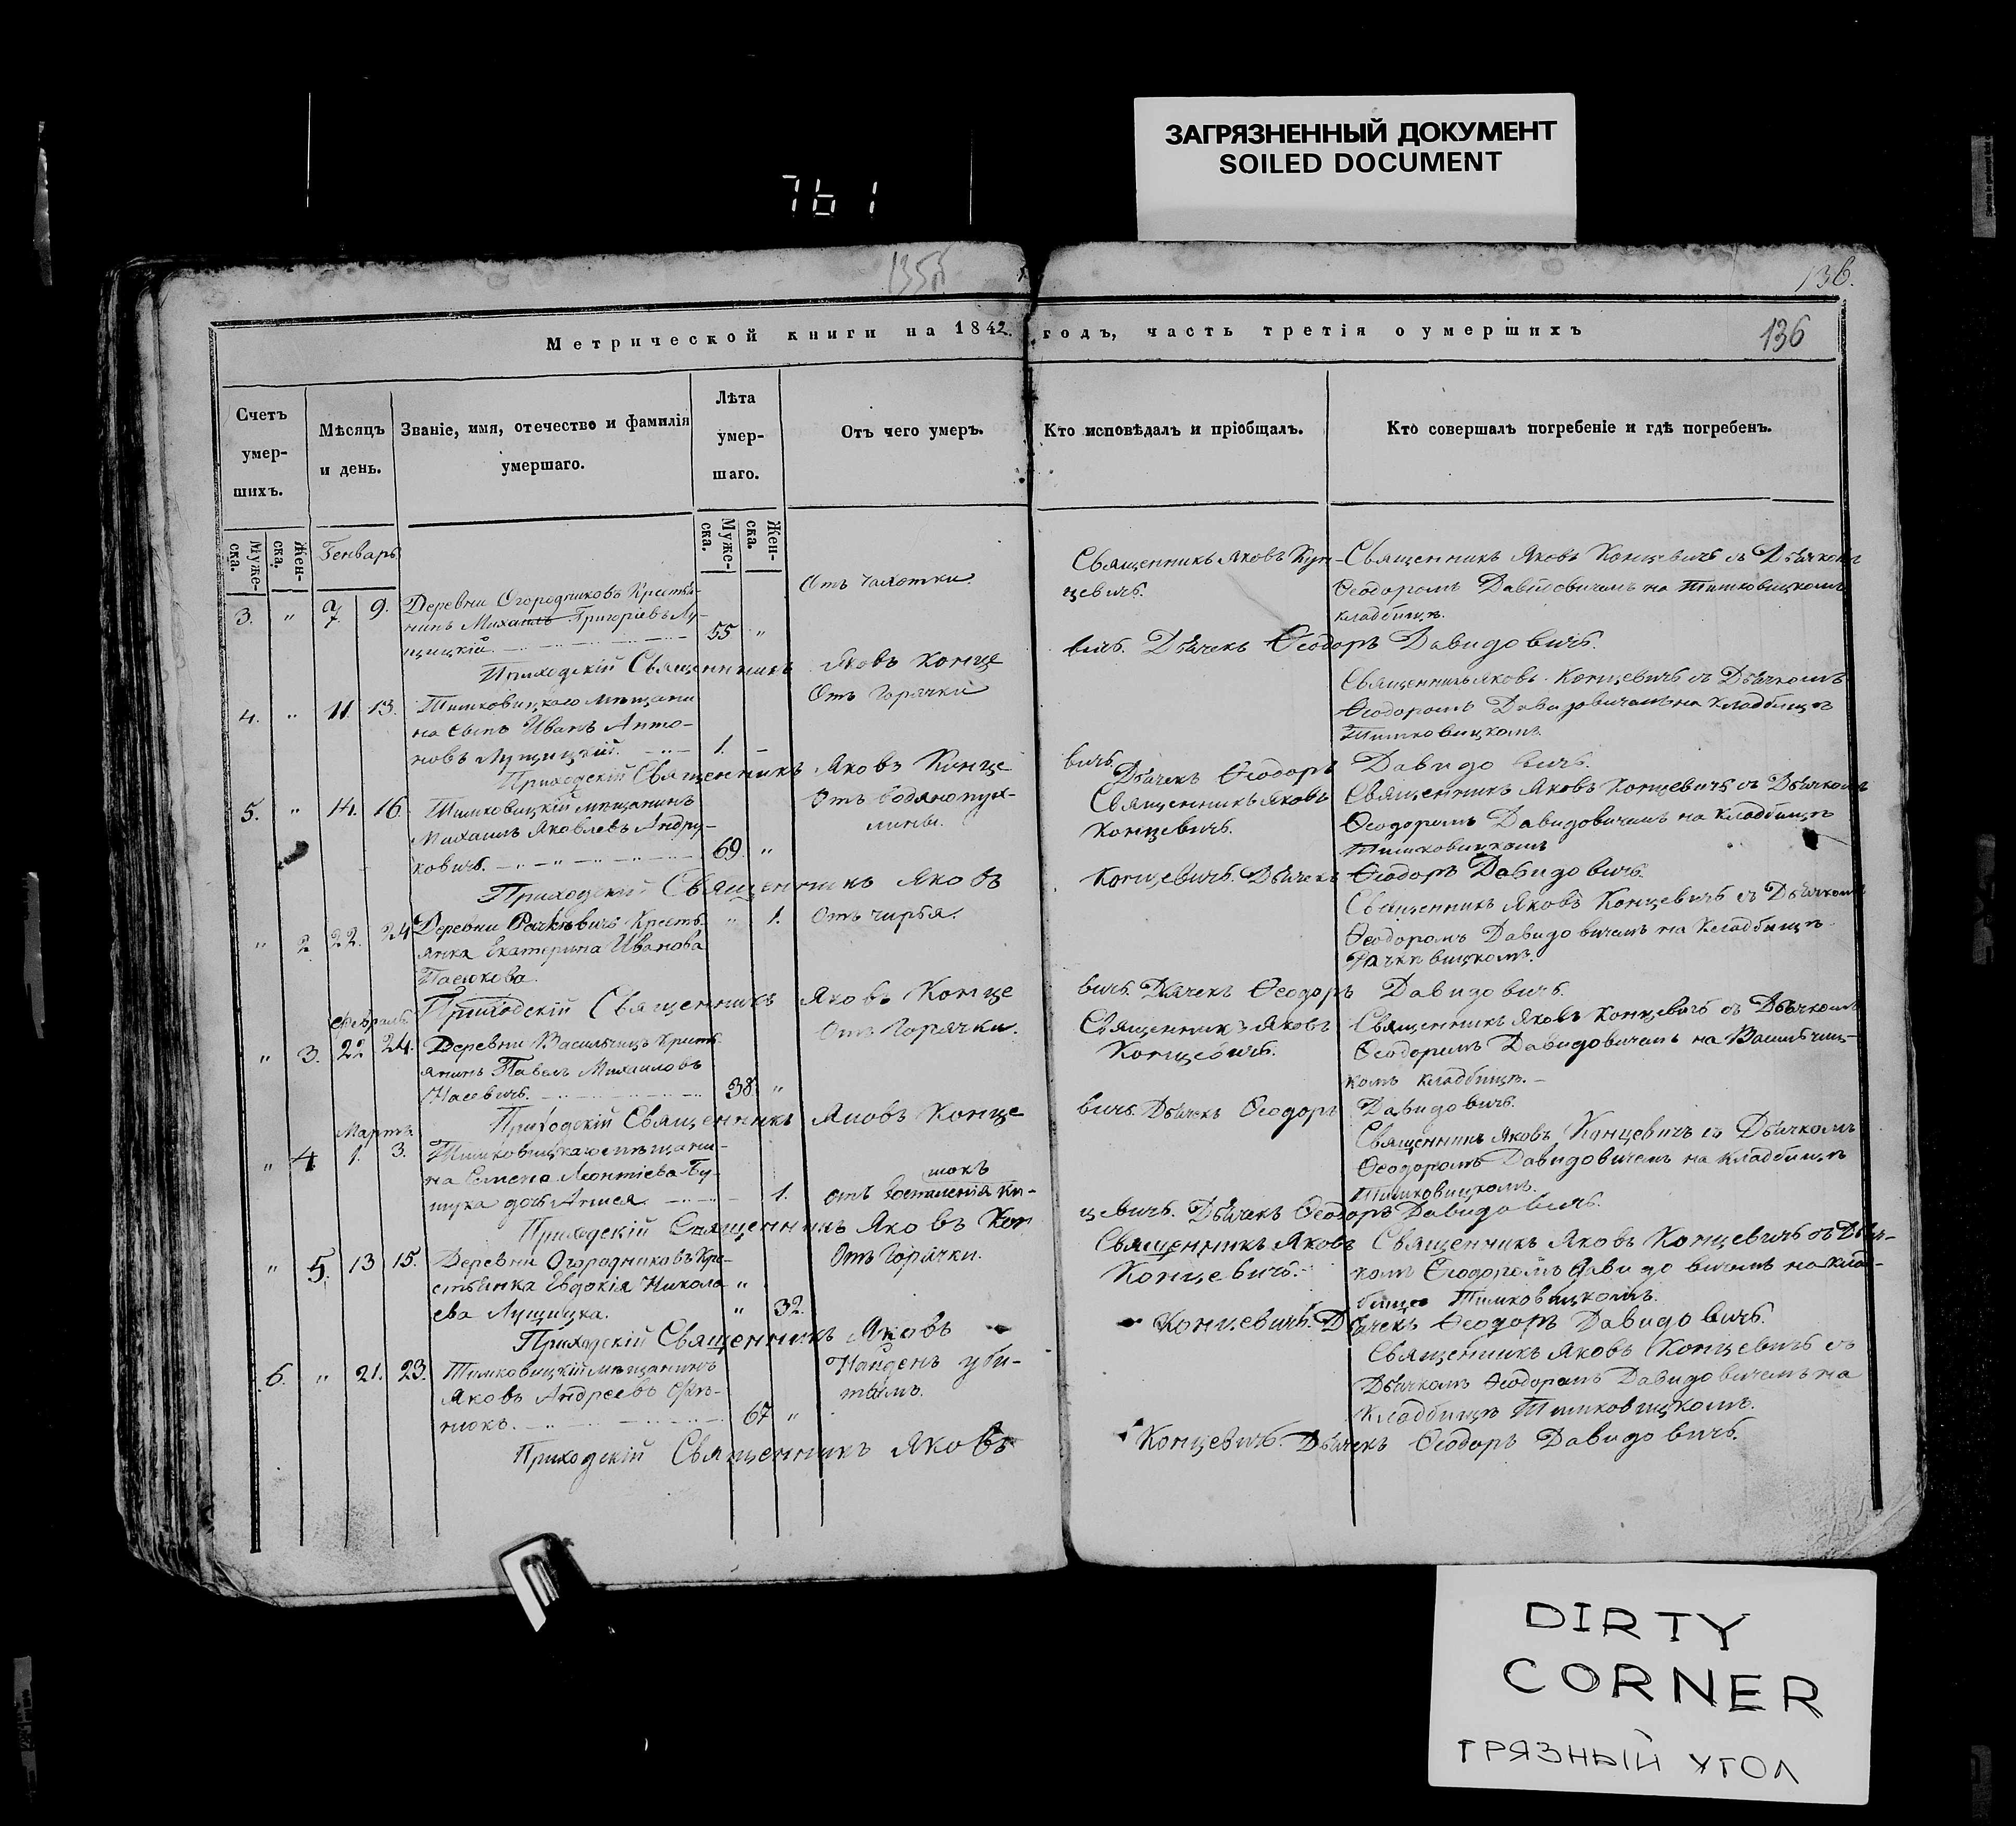 ЗАГРЯЗНЕННЫЙ ДОКУМЕНТ
SOILED DOCUMENT
761
135
136.
Метрической книги на 1842. годъ, часть третія о умершихъ
136
Счетъ умер-шихъ.
Мѣсяцъ и день.
Званіе, имя, отечество и фамилія умершаго.
Лѣта умер-шаго.
Отъ чего умеръ.
Кто исповѣдалъ и пріобщалъ.
Кто совершалъ погребеніе и гдѣ погребенъ.
Муже-ска.
Жен-ска.
Генварь
Муже-ска.
Жен-ска.
3. " 7. 9. Деревни Огородниковъ Крестья-
нинъ Михаилъ Григоріевъ Лу-
щицкій. 55 "
Отъ чахотки
Священникъ Яковъ Кун-
цевичъ.
Священникъ Яковъ Концевичъ съ Дьячкомъ
Ѳеодоромъ Давидовичемъ на Тимковицкомъ
кладбищѣ.
Приходскій Священникъ Яковъ Конце
вичъ. Дьячекъ Ѳеодоръ Давидовичъ.
4. " 11. 13. Тимковицкаго мѣщани
на сынъ Иванъ Анто-
новъ Лущицкій. 1. -
Отъ Горячки
Священникъ Яковъ Концевичъ съ Дьячкомъ
Ѳеодоромъ Давидовичемъ на кладбищѣ
Тимковицкомъ.
Приходскій Священникъ Яковъ Конце
вичъ. Дьячекъ Ѳеодоръ Давидовичъ.
5. " 14. 16. Тимковицкій мѣщанинъ
Михаилъ Яковлевъ Андру-
ковичъ. 69. "
Отъ водяно пух-
лины.
Священникъ Яковъ
Концевичъ.
Священникъ Яковъ Концевичъ съ Дьячкомъ
Ѳеодоромъ Давидовичемъ на кладбищѣ
Тимковицкомъ
Приходскій Священникъ Яковъ
Концевичъ. Дьячекъ Ѳеодоръ Давидовичъ.
" 2 22. 24 Деревни Рачкѣвичъ Кресть-
янка Екатерина Иванова
Пасюкова. " 1.
Отъ чирья.
Священникъ Яковъ Концевичъ съ Дьячкомъ
Ѳеодоромъ Давидовичемъ на Кладбищѣ
Рачкѣвицкомъ.
Приходскій Священникъ Яковъ Конце
вичъ. Дьячекъ Ѳеодоръ Давидовичъ.
Февраль
" 3. 22 24. Деревни Васильчицъ Кресть-
янинъ Павелъ Михаиловъ
38. "
Отъ Горячки.
Священникъ Яковъ
Концевичъ.
Священникъ Яковъ Концевичъ съ Дьячкомъ
Ѳеодоромъ Давидовичемъ на Васильчиц-
комъ кладбищѣ.
Приходскій Священникъ Яковъ Конце
вичъ. Дьячекъ Ѳеодоръ Давидовичъ.
Мартъ
" 4 1. 3. Тимковицкаго мѣщани-
на Семена Леонтіева
дочь 1.
отъ воспаленія Ки-
шокъ
Священникъ Яковъ Концевичъ съ Дьячкомъ
Ѳеодоромъ Давидовичемъ на кладбищѣ
Тимковицкомъ.
Приходскій Священникъ Яковъ Кон
цевичъ. Дьячекъ Ѳеодоръ Давидовичъ.
" 5. 13 15. Деревни Огородниковъ Кре-
стьянка Евдокія Никола "
ева Лущицка. " 32.
Отъ Горячки.
Священникъ Яковъ
Концевичъ.
Священникъ Яковъ Концевичъ съ Дьяч-
комъ Ѳеодоромъ Давидовичемъ на клад-
бище Тимковицкомъ.
Приходскій Священникъ Яковъ
Концевичъ. Дьячекъ Ѳеодоръ Давидовичъ.
6. " 21. 23. Тимковицкій мѣщанинъ
Яковъ Андреевъ
67 "
Найденъ уби-
тымъ.
Священникъ Яковъ Концевичъ съ
Дьячкомъ Ѳеодоромъ Давидовичемъ на
Кладбищѣ Тимковицкомъ.
Приходскій Священникъ Яковъ
Концевичъ. Дьячекъ Ѳеодоръ Давидовичъ.
DIRTY
CORNER
ГРЯЗНЫЙ УГОЛ